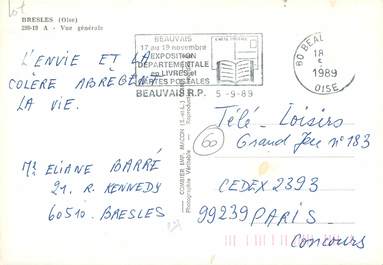 lot
BRESLES (Oise)
289-13 A - Vue générale
L'ENVIE ET LA
COLÈRE ABRÈGENT
LA VIE.
Me ELIANE BARRÉ
21. R. KENNEDY
60510. BRESLES
BEAUVAIS
17 au 19 novembre
EXPOSITION
DÉPARTEMENTALE
en LIVRES et
CARTES POSTALES
BEAUVAIS R.P.
CARTE POSTALE
5-9-89
60 BEAU
18
5
1989
OISE
COMBIER IMP. MACON (S.-et-L.)
Photographie Véritable
60
Télé-Loisirs
Grand Jeu n° 183
CEDEX 2393
99239 PARIS-
Concours